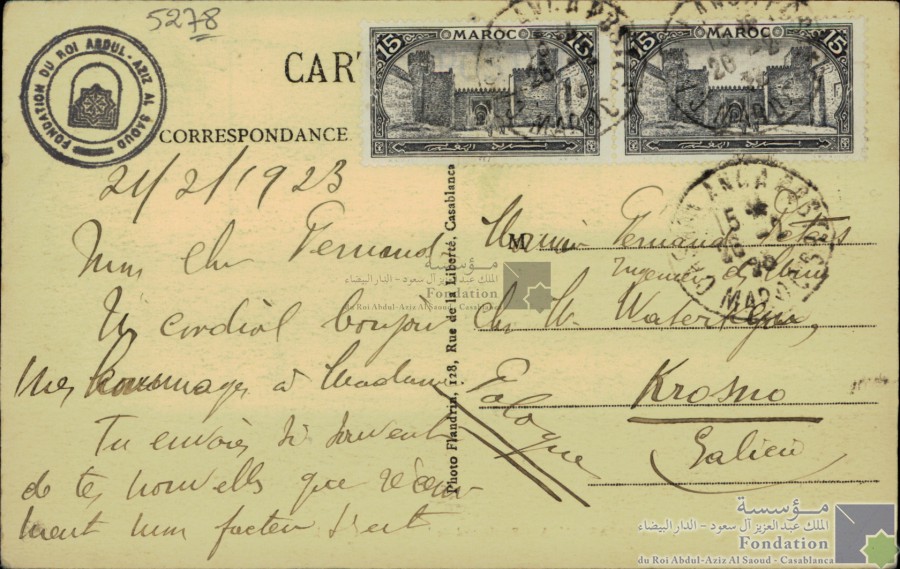 5278
FONDATION DU ROI ABDUL-AZIZ AL SAOUD
CART
CORRESPONDANCE
15 MAROC 15
15 MAROC 15
MAROC
21/2/1923
Mon Cher Fernand
Un cordial bonjour
Mes hommages à Madame.
Tu envoies si souvent
de tes nouvelles que
ment mon facteur
Photo Flandrin, 128, Rue de la Liberté, Casablanca
M
Monsieur Fernand
Ingénieur
Chez Mr
Krosno
Galicie
Pologne
مؤسسة
الملك عبد العزيز آل سعود - الدار البيضاء
Fondation
du Roi Abdul-Aziz Al Saoud - Casablanca
مؤسسة
الملك عبد العزيز آل سعود - الدار البيضاء
Fondation
du Roi Abdul-Aziz Al Saoud - Casablanca